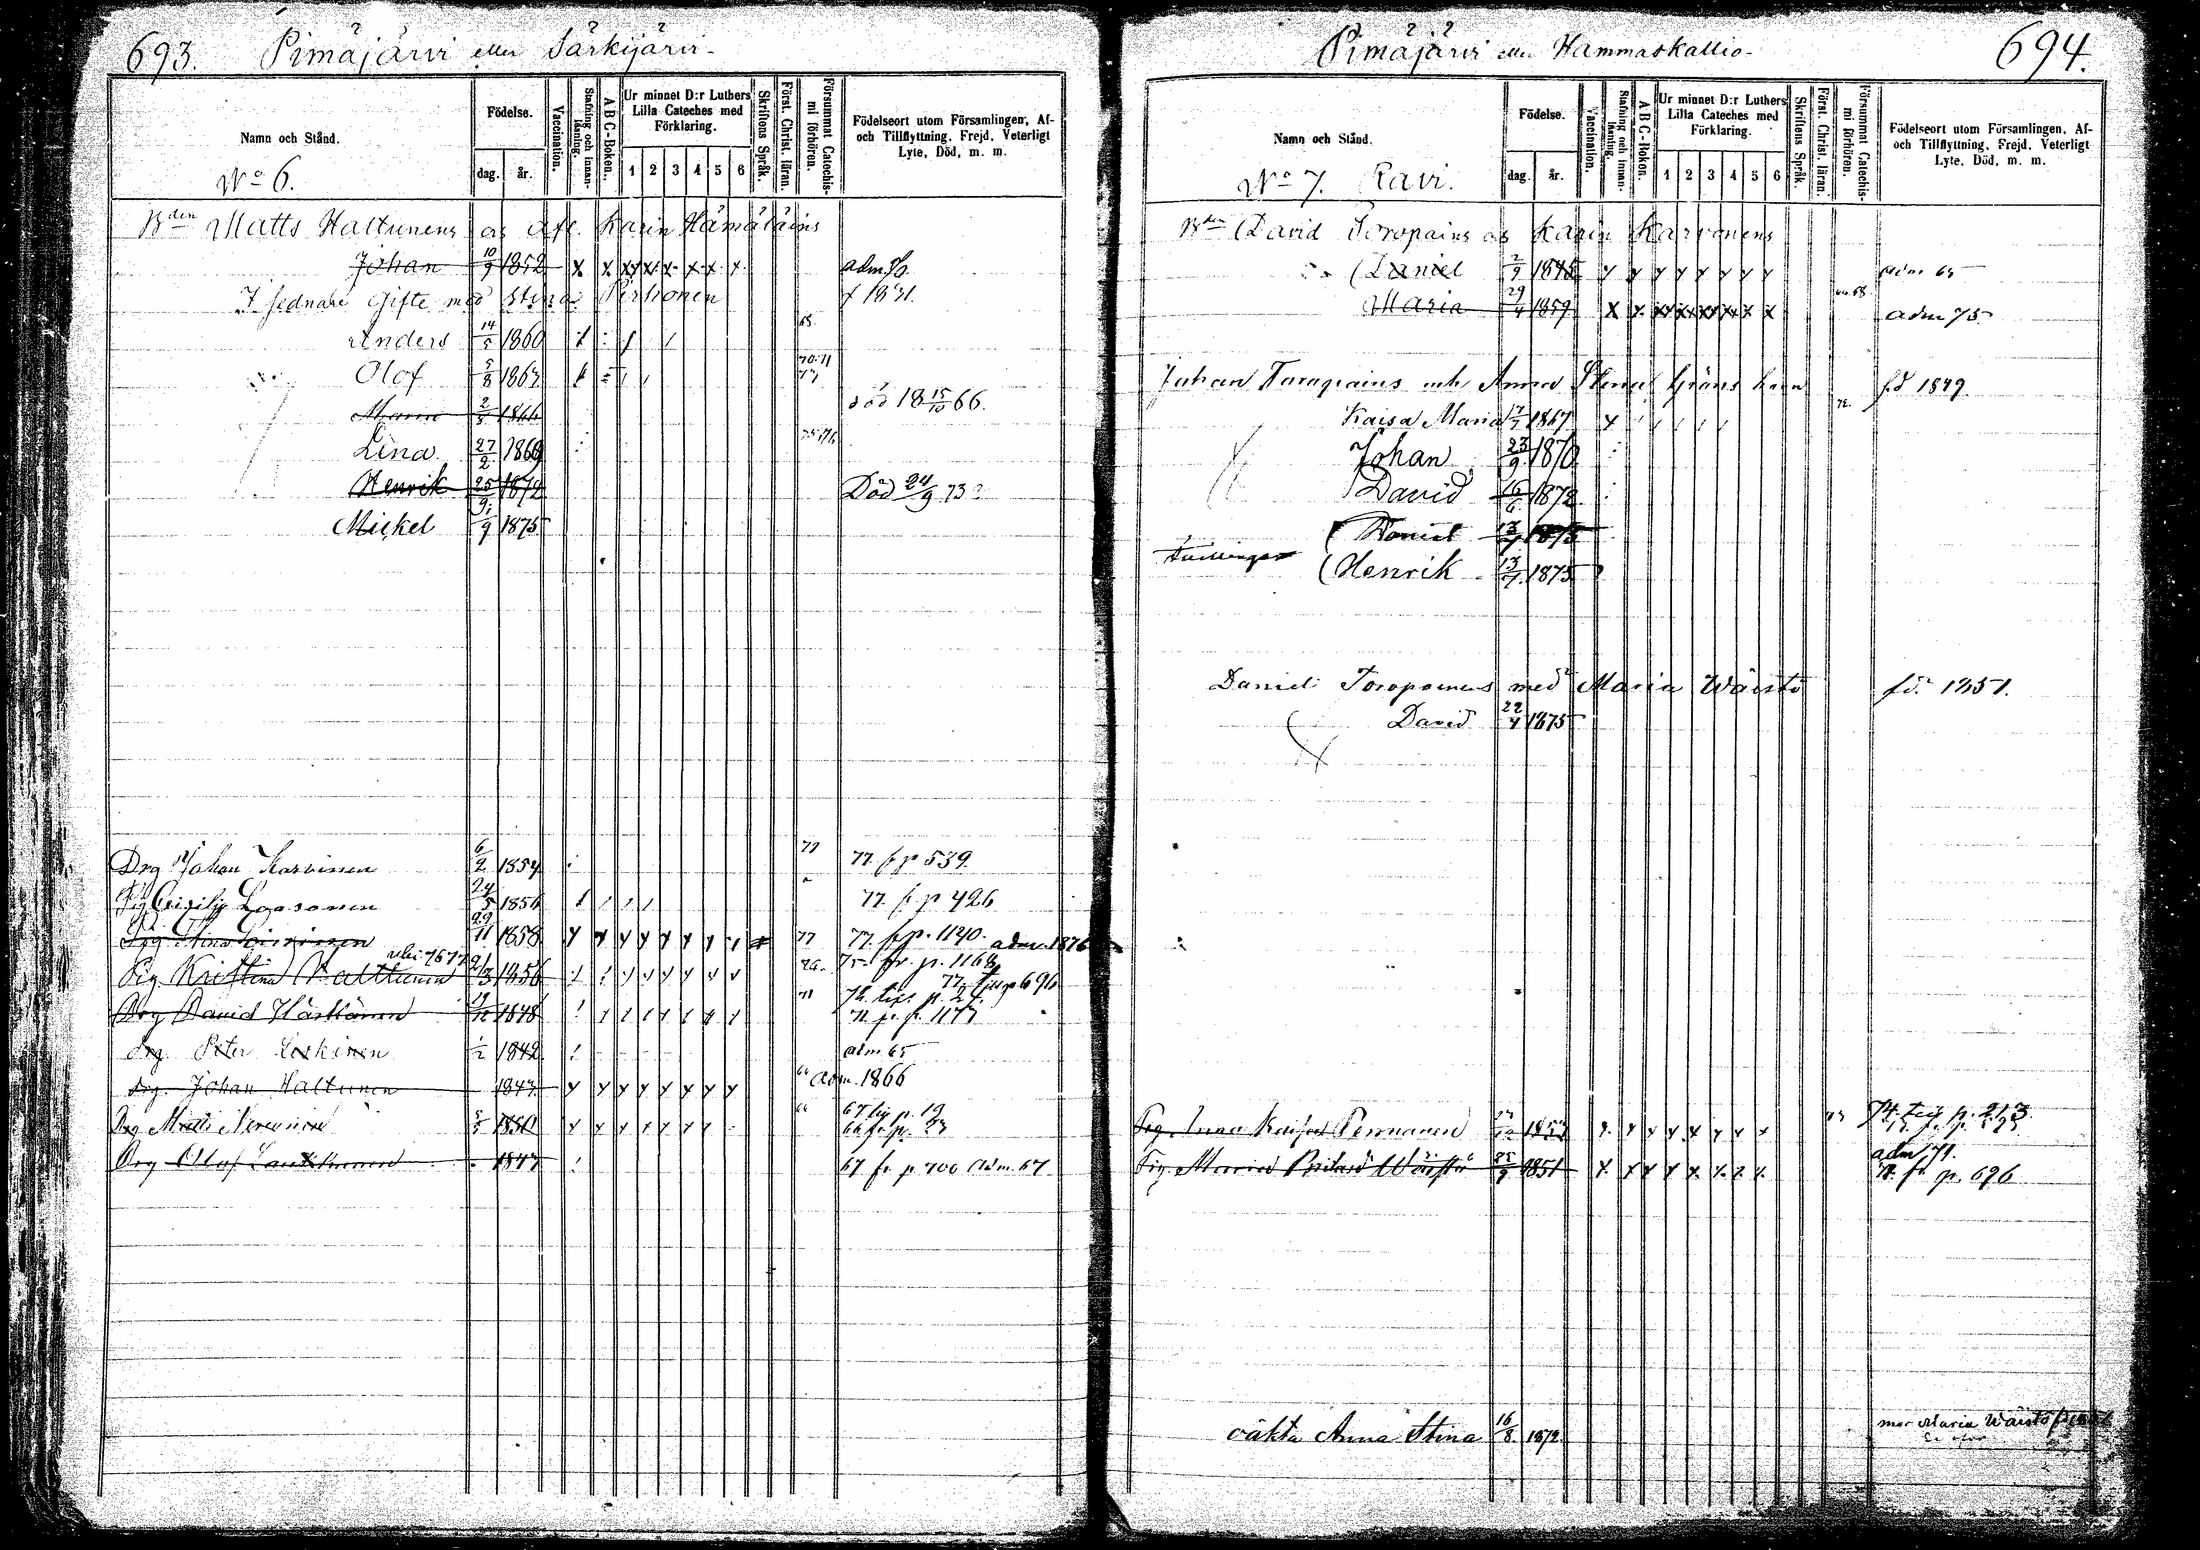 693. Pimäjärvi eller Särkijärvi
Namn och Stånd.
No 6.
Födelse.
dag. år.
Vaccination.
Stafning och innanläsning.
A B C-Boken.
Ur minnet D:r Luthers Lilla Cateches med Förklaring.
1 2 3 4 5 6
Skriftens Språk.
Först. Christ. läran.
Försummat Catechismi förhören.
Födelseort utom Församlingen, Af- och Tillflyttning. Frejd, Veterligt Lyte, Död, m. m.
Bden Matts Haltunens och Afl. Karin Hämäläins
Johan 10/9 1852 adm 70
I sednare Gifte med Stina Pirhonen f 1831.
Anders 14/5 1860 65
Olof 5/8 1863 70-71 77
2/5 1866 död 18 15/10 66.
Lena 27/2 1869 75-76
Henrik 25/9 1872 Död 24/9 73
Mickel 9/9 1875
Drg Johan Karvinen 6/2 1854 77 77 fr p 539.
Pig Cecilia Loosonen 24/5 1856 77. fr p 426
29/11 1858 77 77 fr p. 1120. adm. 1876
Pig. Kristina Halttunen 21/3 1856 75 fr. p. 1168
77 p 696
Drg David Härkönen 19/12 1848 71 72 p. 24.
71 fr. p. 1177
Drg. Peter Loskinen 1/2 1842 adm 65
drg. Johan Haltunen 1847 66 adm. 1866
Drg Matts 5/5 1850 66 67 p. 19
66 fr p. 23
Drg Olof 1847 67 fr. p. 700 adm. 67.
Pimäjärvi eller Hammaskallio 694.
Namn och Stånd.
No 7. Ravi.
Födelse.
dag. år.
Vaccination.
Stafning och innanläsning.
A B C-Boken.
Ur minnet D:r Luthers Lilla Cateches med Förklaring.
1 2 3 4 5 6
Skriftens Språk.
Först. Christ. läran.
Försummat Catechismi förhören.
Födelseort utom Församlingen, Af- och Tillflyttning. Frejd, Veterligt Lyte, Död, m. m.
Bden David Toropains och Karin Karvonens
Daniel 2/9 1845 adm 65
Maria 29/4 1859 66.68 adm 75.
Johan Toropains och Anna Stina fd 1849.
Kaisa Maria 1867 72.
Johan 23/9 1870
David 16/6 1872
Daniel 13/7 1875
Tvillingar
Henrik 13/7 1875
Daniel Toropainens med Maria Wäistö fd. 1851.
David 22/4 1875
Pig. Anna Kaisa Pennanen 74. p. 213
adm 71.
Pig. Maria Wäistö 25/9 1851 71. fr. p. 696
oäkta Anna Stina 16/8 1872. mor Maria Wäistö